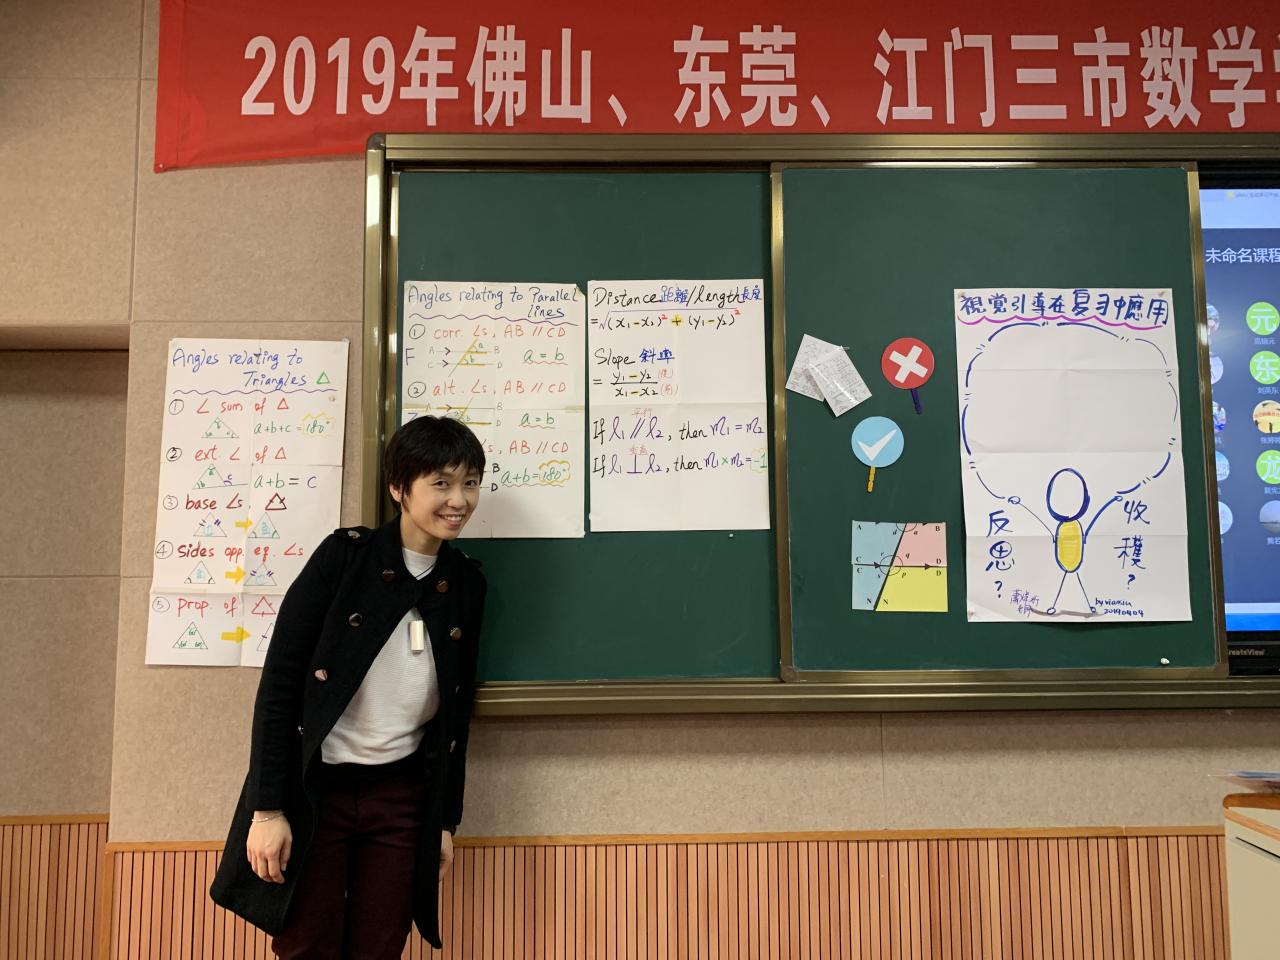 2019年佛山、东莞、江门三市数学
Angles relating to
Triangles △
① ∠ sum of △
a+b+c=180°
② ext. ∠ of △
a+b=c
③ base ∠s,
④ sides opp. eq. ∠s
⑤ prop. of
Angles relating to Parallel
lines
① corr. ∠s, AB // CD
F
A
B
C
D
a
b
a=b
② alt. ∠s, AB // CD
A
B
a=b
∠s, AB // CD
B
D
a+b=180°
Distance距離/length長度
=√(x₁-x₂)²+(y₁-y₂)²
Slope 斜率
= y₁-y₂ / x₁-x₂
平行
If l₁ // l₂, then m₁=m₂
If l₁ ⊥ l₂, then m₁×m₂=-1
A
B
d
a
C
C
D
D
r
q
s
p
N
N
視覚引導在复习中應用
反
思
?
收
穫
?
20190404
未命名课程
元
东
龙